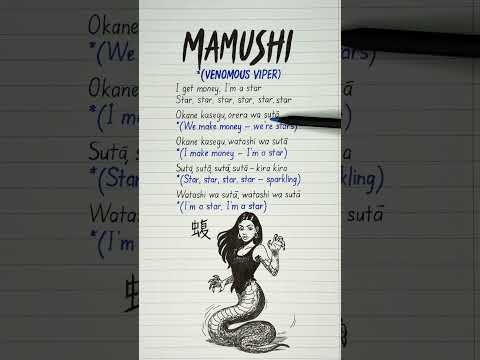 MAMUSHI
*(VENOMOUS VIPER)
I get money, I'm a star
Star, star, star, star, star, star
Okane kasegu, orera wa sutā
*(We make money – we're stars)
Okane kasegu, watashi wa sutā
*(I make money – I'm a star)
Sutā, sutā, sutā, sutā – kira kira
*(Star, star, star, star – sparkling)
Watashi wa sutā, watashi wa sutā
*(I'm a star, I'm a star)
蝮